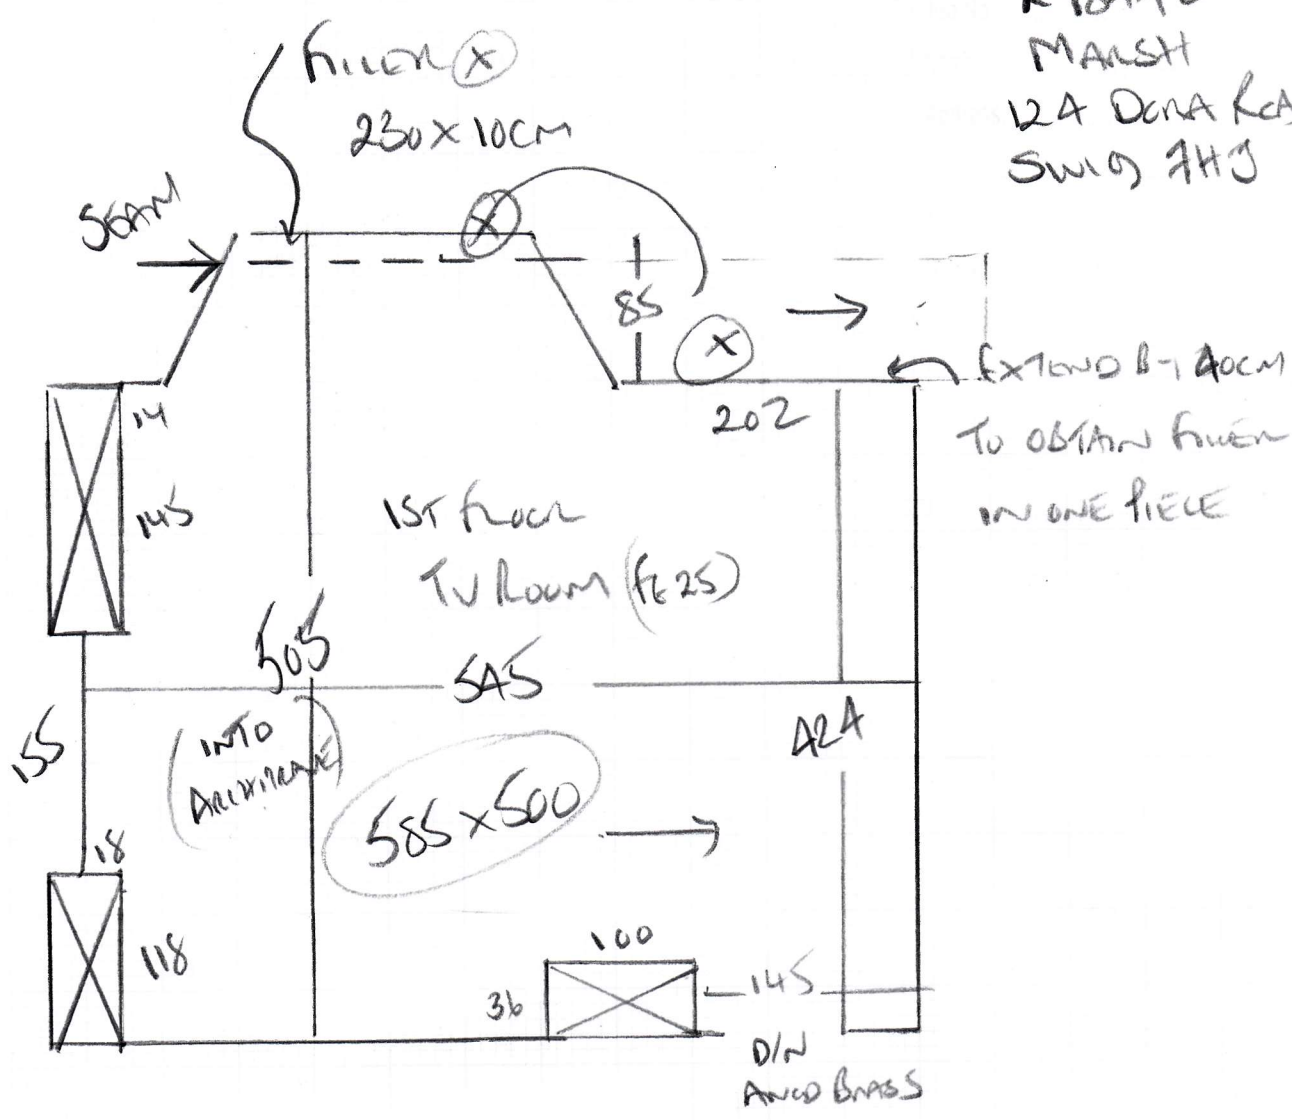 MARSH
124 DORA ROA
SW19 7HJ
FILLER X
230 X 10CM
SEAM
X
85
X
EXTEND BY 40CM
TO OBTAIN FILLER
IN ONE PIECE
202
14
145
1ST FLOOR
TV ROOM (FE25)
505
545
(INTO
ARCHITRAVE)
424
155
585 X 500
18
118
100
36
145
D/N
ANOD BRASS